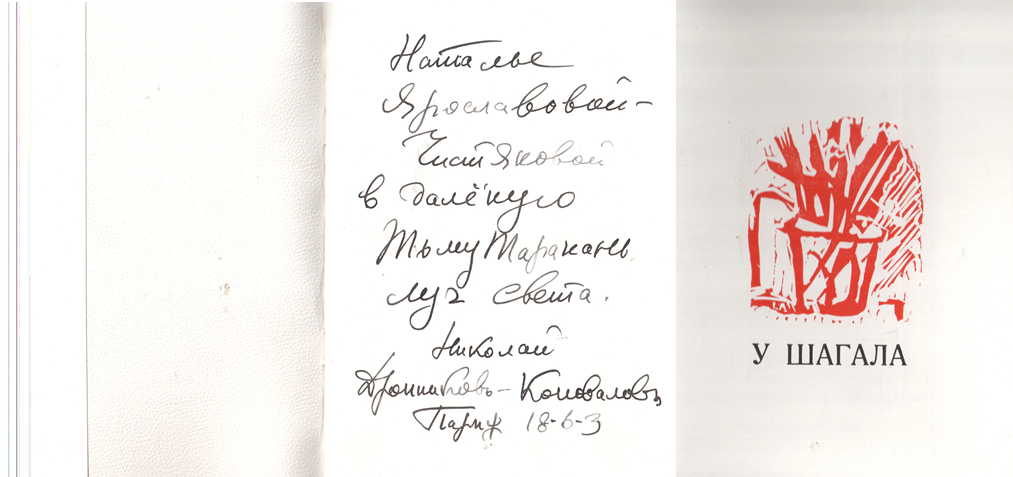 Наталье
Ярославовой-
Чистяковой
в далёкую
Тьму Таракань
луч света.
Николай
Дронниковъ-Коноваловъ
Париж 18-6-3
У ШАГАЛА